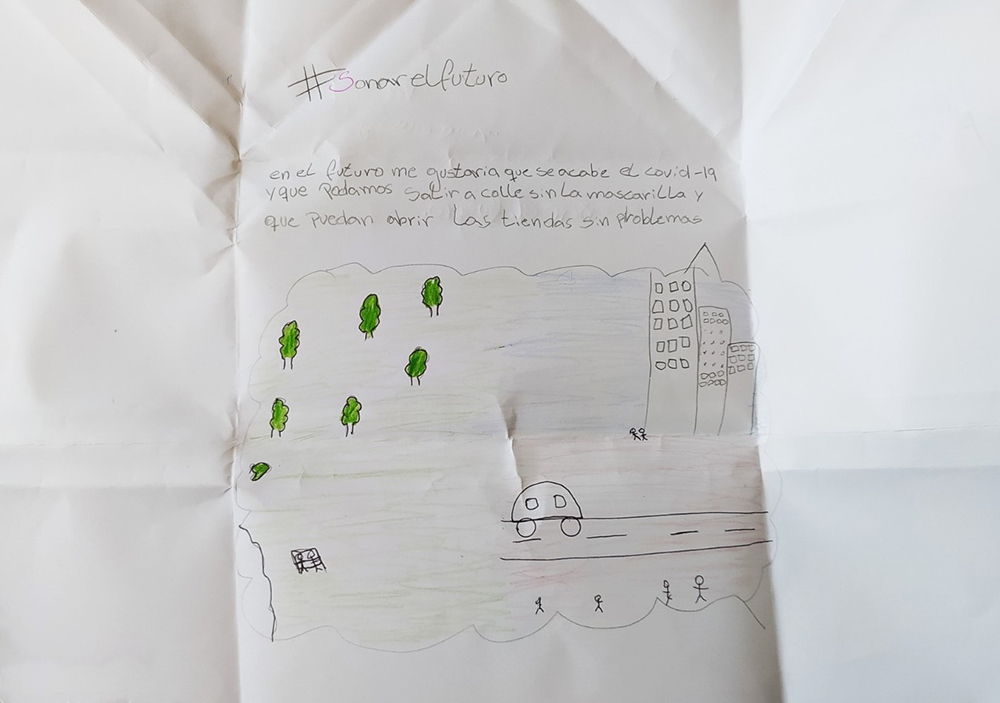 #Sonarelfuturo
en el futuro me gustaria que se acabe el covid-19
y que Podamos salir a calle sin la mascarilla y
que puedan abrir las tiendas sin problemas